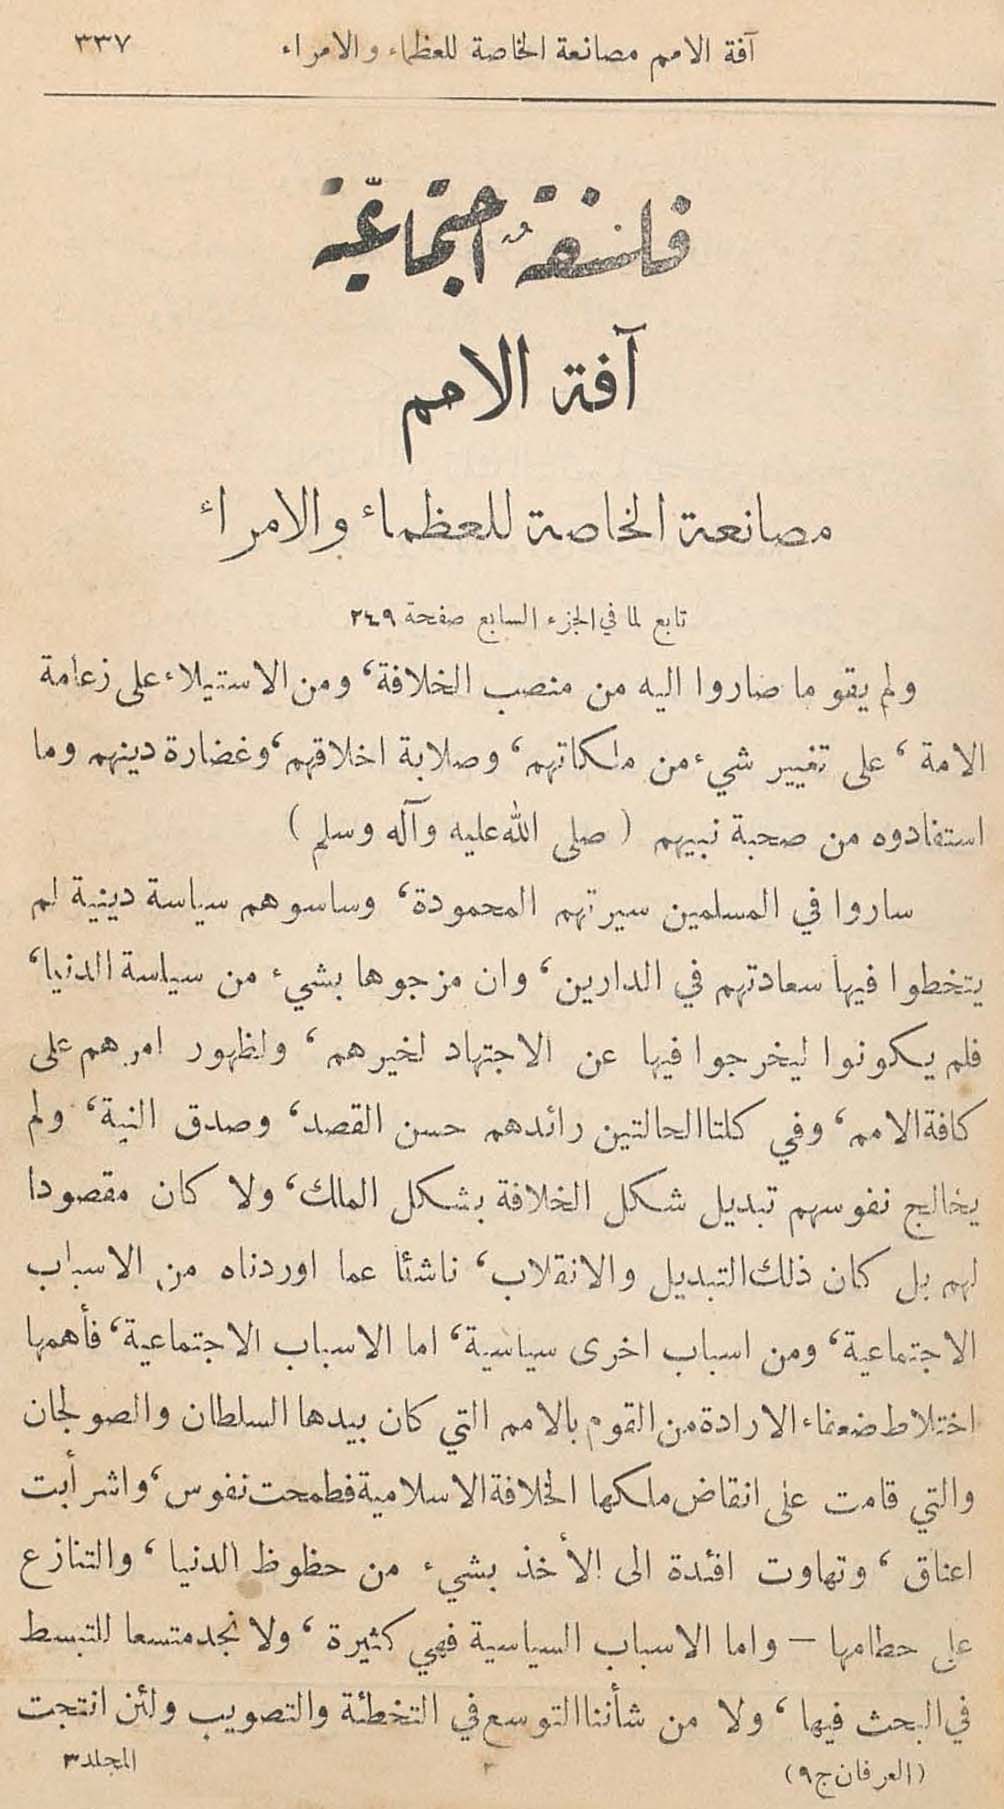 آفة الامم مصانعة الخاصة للعظماء والامراء ٣٣٧
فلسفةٌ اجتماعيّة
آفة الامم
مصانعة الخاصة للعظماء والامراء
تابع لما في الجزء السابع صفحة ٢٤٩
ولم يقو ما صاروا اليه من منصب الخلافة، ومن الاستيلاء على زعامة
الامة، على تغيير شيء من ملكاتهم، وصلابة اخلاقهم، وغضارة دينهم وما
استفادوه من صحبة نبيهم (صلى الله عليه وآله وسلم)
ساروا في المسلمين سيرتهم المحمودة، وساسوهم سياسة دينية لم
يتخطوا فيها سعادتهم في الدارين، وان مزجوها بشيء من سياسة الدنيا،
فلم يكونوا ليخرجوا فيها عن الاجتهاد لخيرهم، ولظهور امرهم على
كافة الامم، وفي كلتا الحالتين رائدهم حسن القصد، وصدق النية، ولم
يخالج نفوسهم تبديل شكل الخلافة بشكل الملك، ولا كان مقصودا
لهم بل كان ذلك التبديل والانقلاب، ناشئا عما اوردناه من الاسباب
الاجتماعية، ومن اسباب اخرى سياسية، اما الاسباب الاجتماعية، فأهمها
اختلاط ضعفاء الارادة من القوم بالامم التي كان بيدها السلطان والصولجان
والتي قامت على انقاض ملكها الخلافة الاسلامية فطمحت نفوس، واشرأبت
اعناق، وتهاوت افئدة الى الأخذ بشيء من حظوظ الدنيا، والتنازع
على حطامها — واما الاسباب السياسية فهي كثيرة، ولا نجد متسعا للتبسط
في البحث فيها، ولا من شأننا التوسع في التخطئة والتصويب ولئن انتجت
(العرفان ج٩) ٣ المجلد ٣